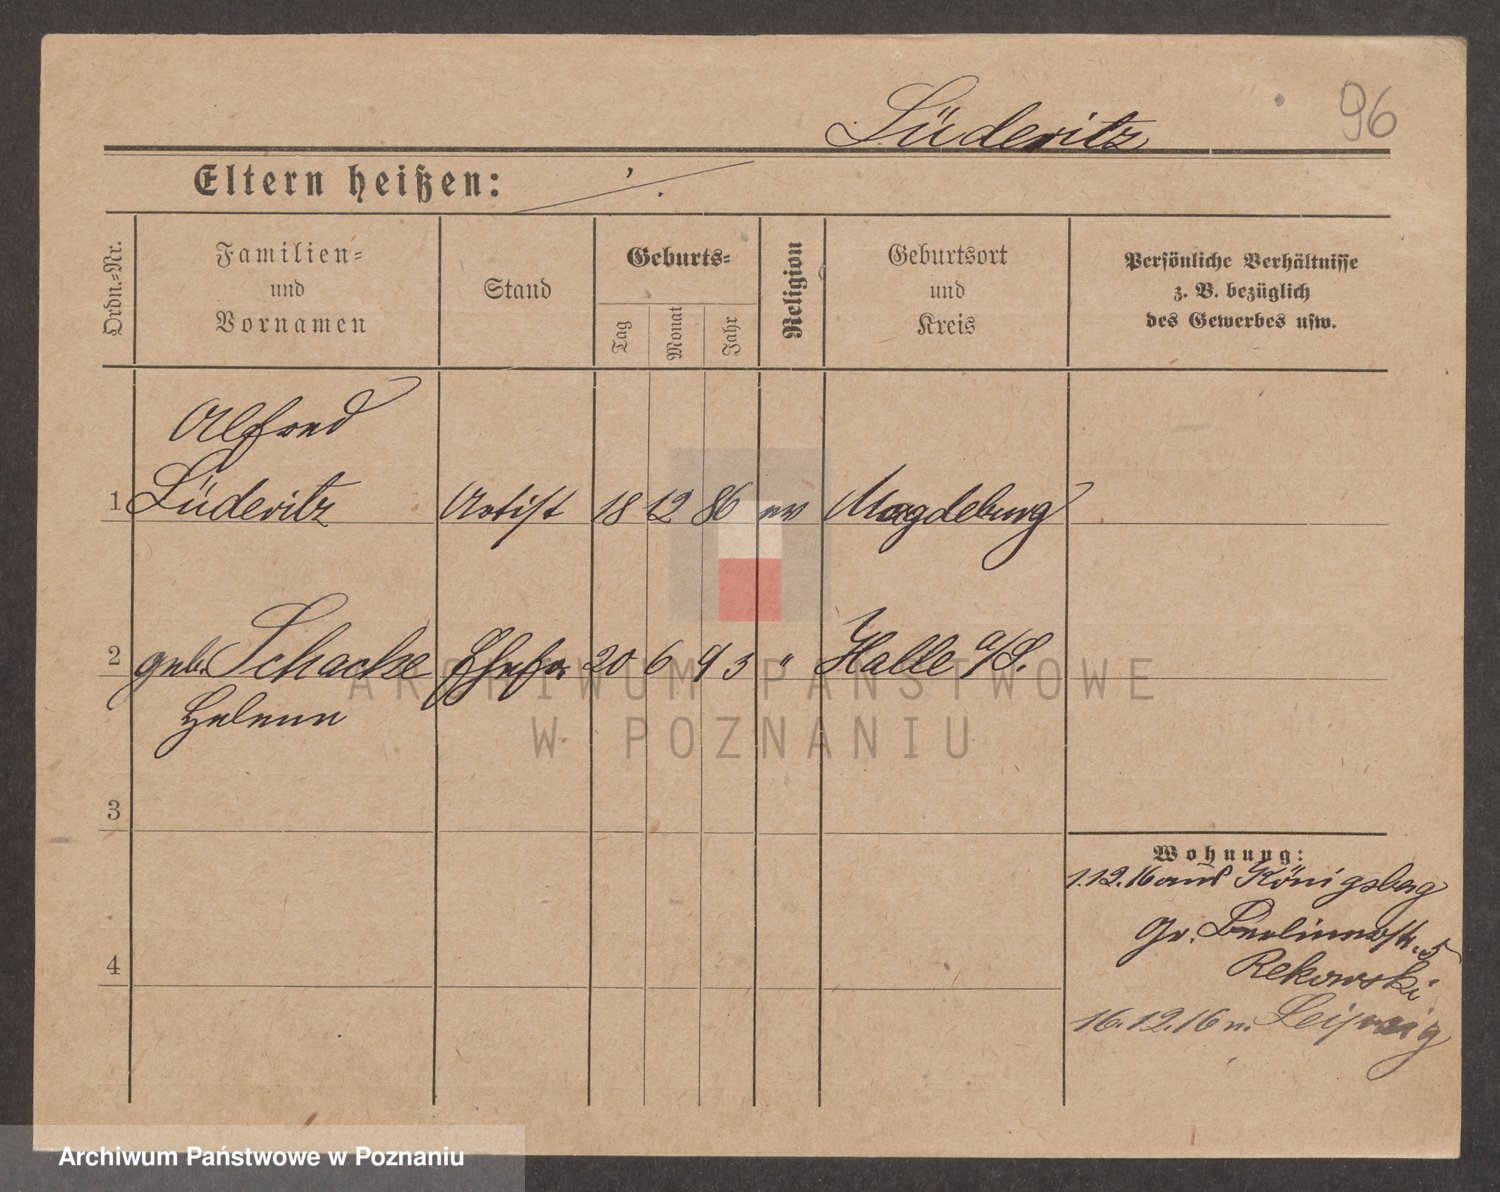 96
Lüderitz
Eltern heißen:
Ordn.-Nr.
Familien-
und
Vornamen
Stand
Geburts-
Tag
Monat
Jahr
Religion
Geburtsort
und
Kreis
Persönliche Verhältnisse
z. B. bezüglich
des Gewerbes usw.
Alfred
1 Lüderitz Artist 18 12 86 ev Magdeburg
2 geb. Schacke Ehefr. 20 6 93 " Halle a/S.
Helene
3
4
Wohnung:
1.12.16 aus Königsberg
Gr. Berlinerstr. 5
Rekowski
16.12.16 n. Leipzig
ARCHIWUM PAŃSTWOWE
W POZNANIU
Archiwum Państwowe w Poznaniu